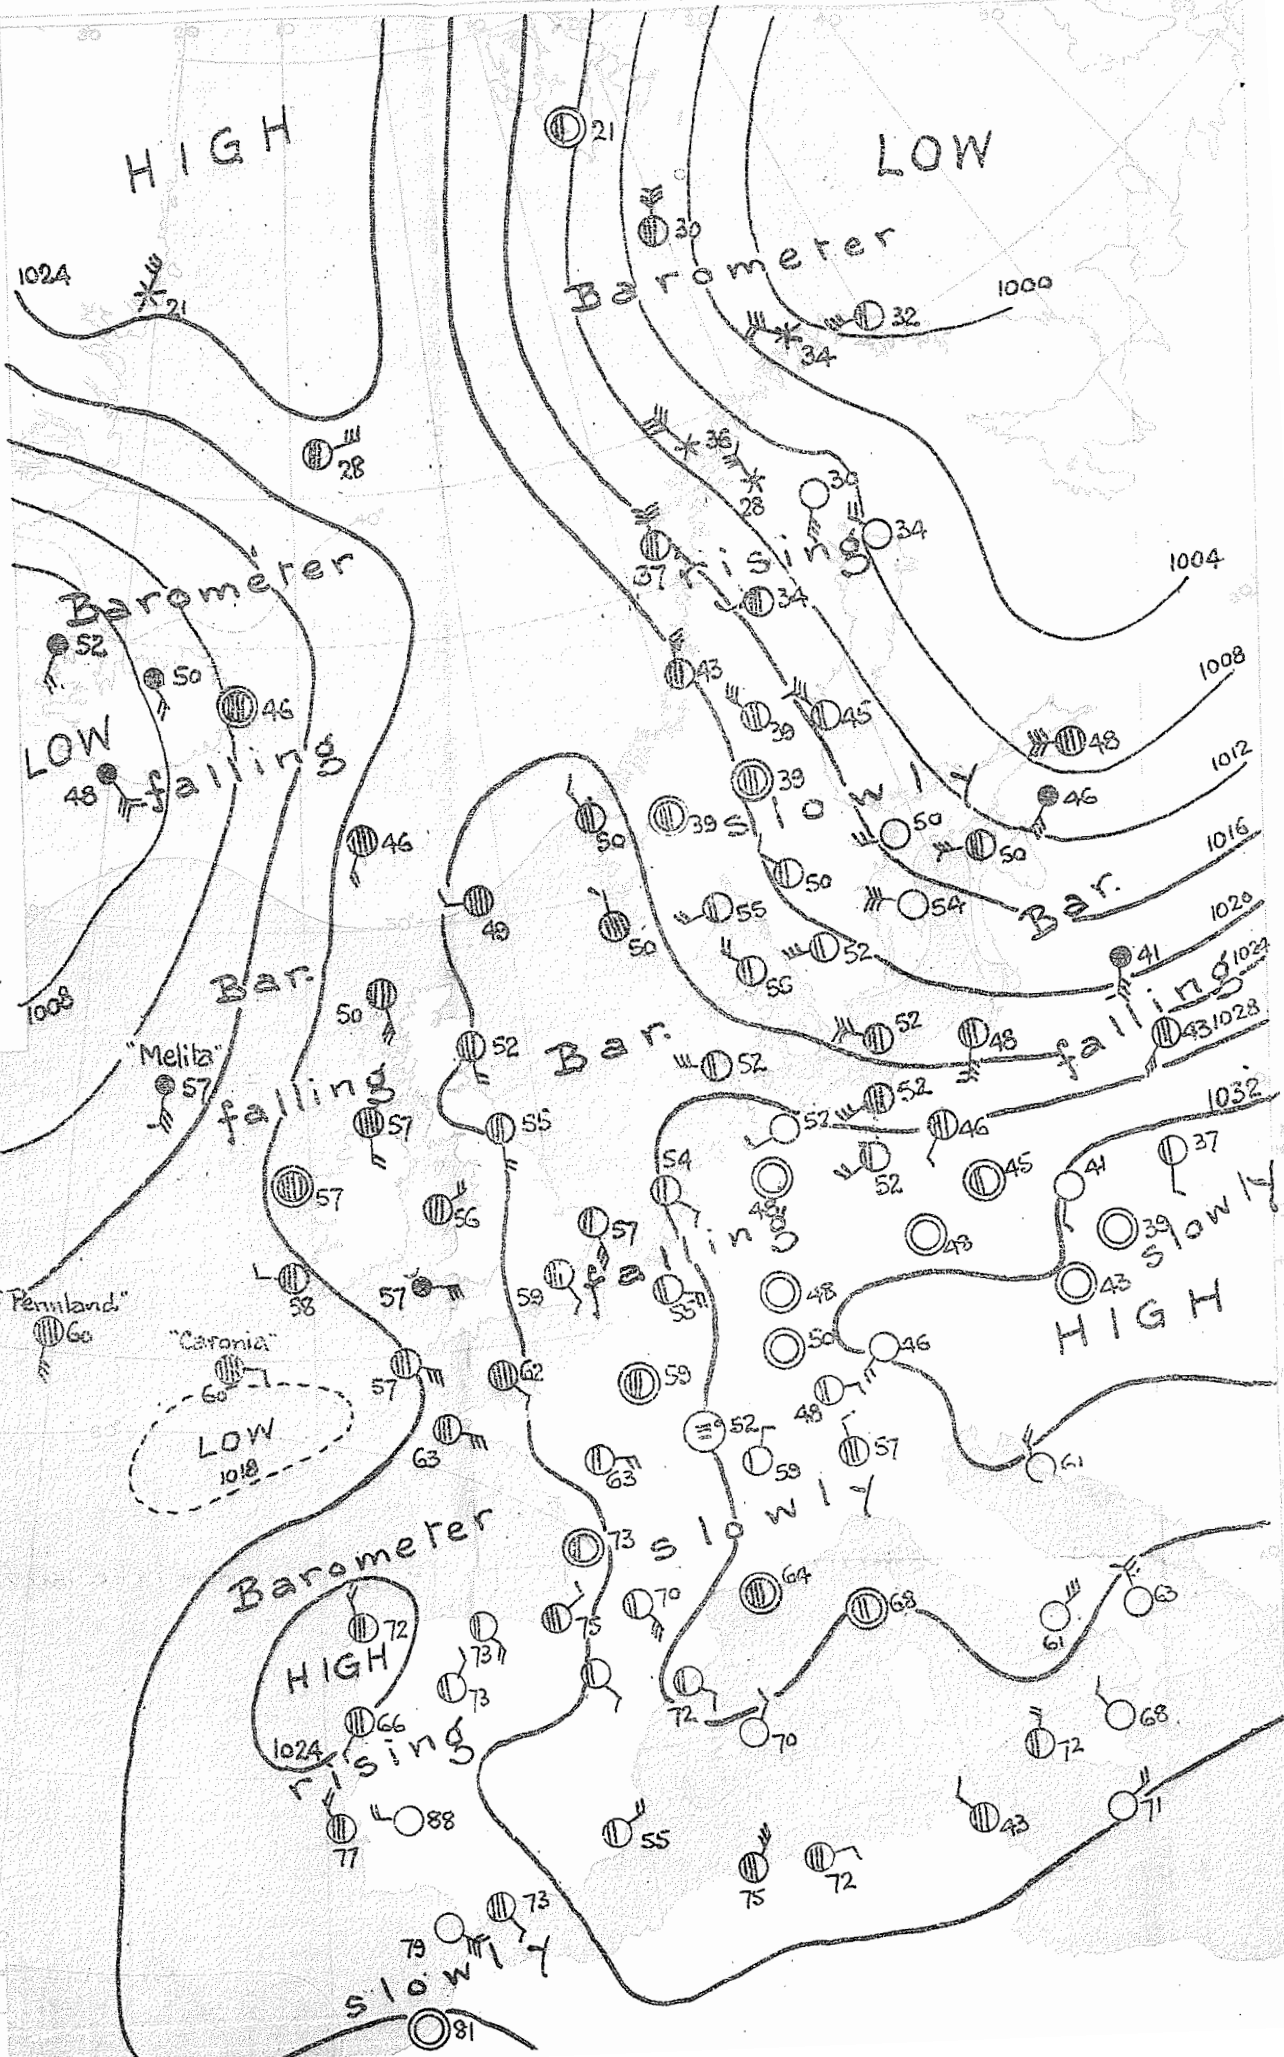 HIGH
21
LOW
30
Barometer
1024
21
1000
32
34
28
36
28
30
34
37
rising
1004
Barometer
34
52
50
46
43
39
45
1008
LOW
48
falling
39
48
1012
46
50
39
slowly
46
50
50
1016
49
50
55
50
54
Bar.
52
56
1020
1024
41
Bar.
50
1008
52
Bar.
52
52
48
falling
43
1028
"Melita"
57
falling
57
55
52
52
46
1032
54
48
52
45
41
37
57
56
57
falling
48
39
slowly
58
57
59
55
48
43
HIGH
"Pennland"
60
"Caronia"
60
57
62
59
50
46
48
LOW
1018
63
63
52
59
57
61
Barometer
73
slowly
72
73
75
70
64
68
61
63
HIGH
73
72
70
72
68
66
1024
rising
77
88
55
75
72
43
71
79
73
slowly
81